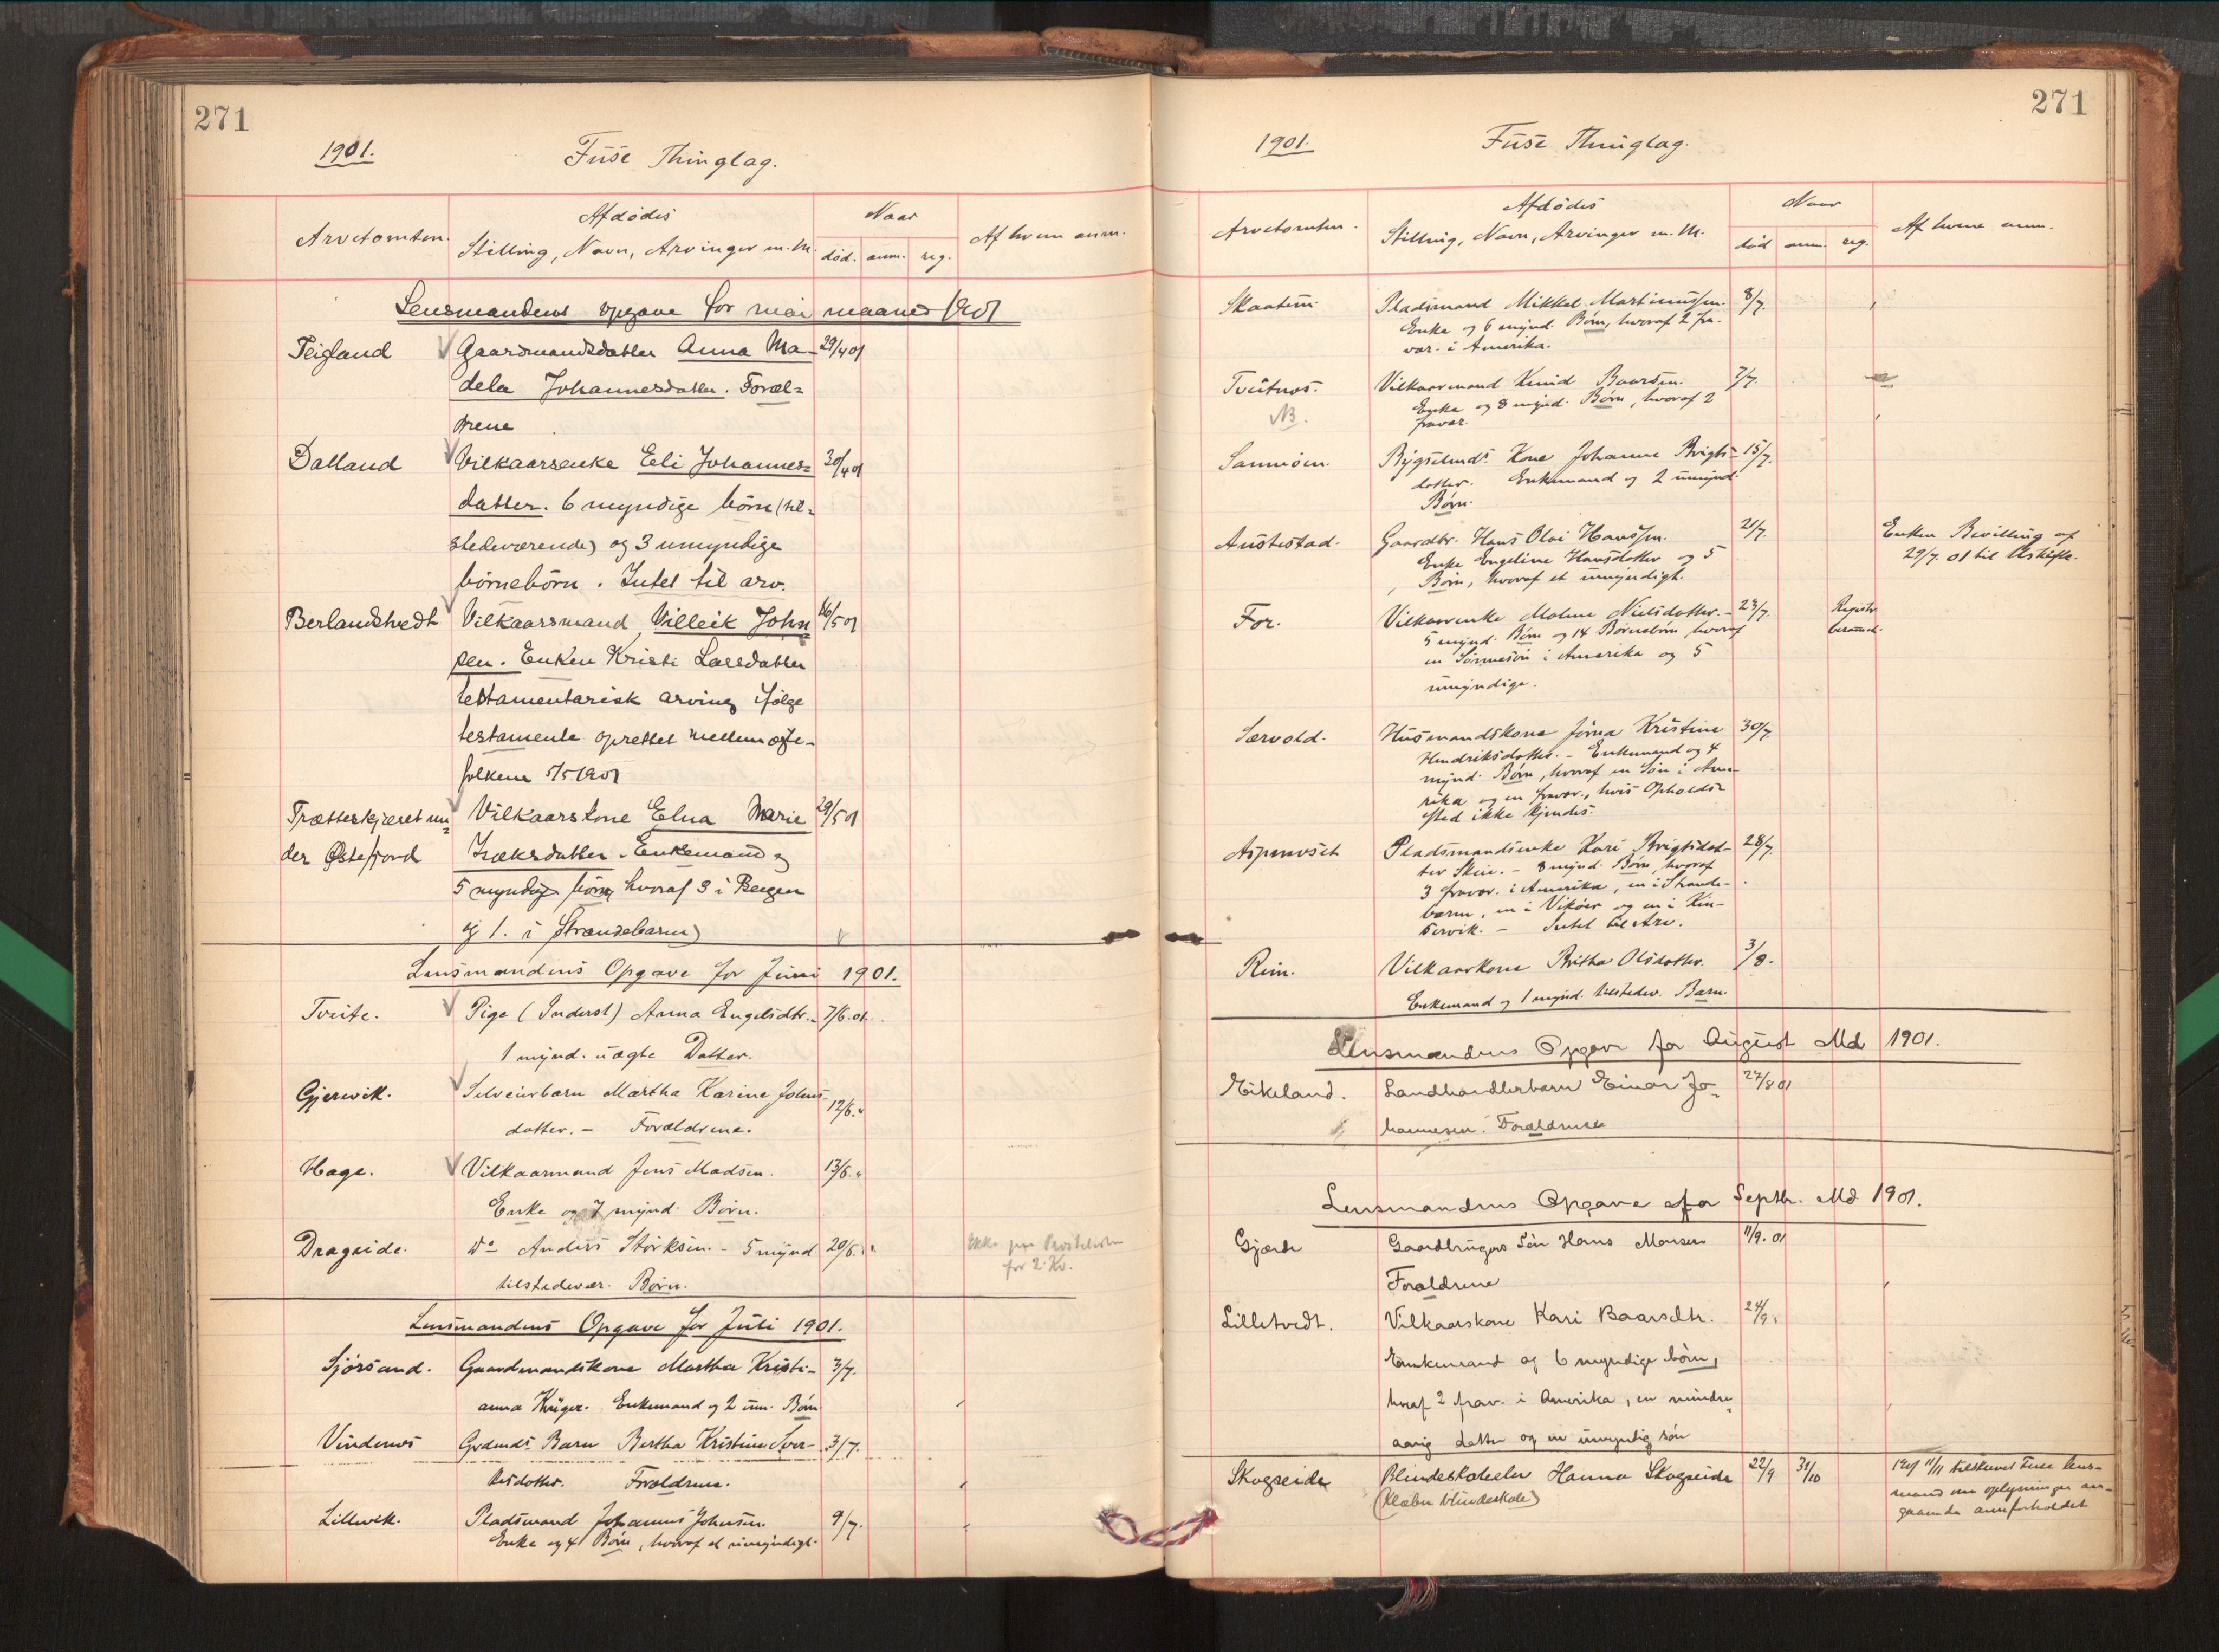 271
1901.
Fuse Thinglag.
Arvetomten.
Afdødes
Stilling, Navn, Arvinger m. M.
Naar
død. anm. reg.
Af hvem anm.
Lensmandens opgave for mai maaned 1901
Teigland Gaardmandsdatter Anna Ma- 29/4 01
dela Johannesdatter. Foræl-
drene
Dalland Vilkaarsenke Eli Johannes- 30/4 01
datter. 6 myndige børn (til-
stedeværende) og 3 umyndige
børnebørn. Intet til arv.
Berlandstvedt Vilkaarsmand Villeik John 16/5 01
sen. Enken Kristi Larsdatter
testamentarisk arving ifølge
testamente oprettet mellem ægte-
folkene 5/5 1901
Trætteskjæret un- Vilkaarskone Elna Marie 29/5 01
der Østefjord Isaksdatter. Enkemand og
5 myndige børn, hvoraf 3 i Bergen
og 1. i Strandebarm)
Lensmandens Opgave for Juni 1901.
Tveite. Pige (Inderst) Anna Engelsdtr. - 7/6.01.
1 mynd. uægte Datter.
Gjerevik. Selveierbarn Martha Karine Johns- 12/6. "
datter. - Forældrene.
Hage. Vilkaarmand Jens Madsen. 13/6. "
Enke og 7 mynd. Børn.
Drageide. Do Anders Størksen. - 5 mynd 20/6. "
tilstedevær. Børn.
for 2. Kv.
Lensmandens Opgave for Juli 1901.
Sjørsand. Gaardmandskone Martha Kristi- 3/7.
anna Krüger. Enkemand og 2 um. Børn
Vindenes Grdmds. Barn Bertha Kristine Sver- 3/7.
resdotter. Forældrene.
Lillevik. Pladsmand Johannes Johnsen. 9/7.
Enke og 4 Børn, hvoraf et umyndigt.
271
1901.
Fuse Thinglag.
Arvetomten.
Afdødes
Stilling, Navn, Arvinger m. M.
Naar
død anm. reg.
Af hvem anm.
Skaatun. Pladsmand Mikkel Martinussen. 8/7.
Enke og 6 mynd. Børn, hvoraf 2 fra-
vær. i Amerika.
Tveitnæs. Vilkaarmand Knud Baardsen. 7/7.
NB. Enke og 8 mynd. Børn, hvoraf 2
fravær.
Sannøen. Bygselmds. Kone Johanne Brigts- 15/7.
datter. Enkemand og 2 umynd.
Børn.
Austestad. Gaardbr. Hans Olai Hanssen. 21/7. Enken Bevilling af
Enke Engeline Hansdotter og 5 29/7. 01 til Uskifte.
Børn, hvoraf et umyndigt.
For. Vilkaarenke Malene Nielsdotter. - 23/7. Registr.
5 mynd. Børn og 14 Børnebørn hvoraf beramd.
en Sønnesøn i Amerika og 5
umyndige.
Sævold. Husmandskone Jørna Kristine 30/7.
Hendriksdotter. - Enkemand og 4
mynd. Børn, hvoraf en Søn i Ame-
rika og en fravær., hvis Opholds-
sted ikke kjendes.
Aspenæset Pladsmandsenke Kari Brigtsdat- 28/7.
ter Skeie. - 8 mynd. Børn, hvoraf
3 fravær. i Amerika, en i Strande-
barm, en i Vikøer og en i Kin-
servik. - Intet til Arv.
Reim. Vilkaarkone Britha Olsdotter. 3/8.
Enkemand og 1 mynd. tilstedev. Barn.
Lensmandens Opgave for August Md 1901.
Eikeland. Landhandlerbarn Einar Jo- 27/8 01
hannesen. Forældrene
Lensmandens Opgave for Septbr. Md 1901.
Gjærde Gaardbrugers Søn Hans Monsen 11/9. 01
Forældrene
Lilletvedt. Vilkaarskone Kari Baarsdtr. 24/9.
Enkemand og 6 myndige børn,
hvoraf 2 frav. i Amerika, en mindre-
aarig datter og en umyndig søn
Skogseide Blindeskoleelev Hanna Skogseide 22/9 31/10 1901 11/11 tilskrevet Fuse lens-
(Klæbu blindeskole) mand om oplysninger an-
gaaende arveforholdet